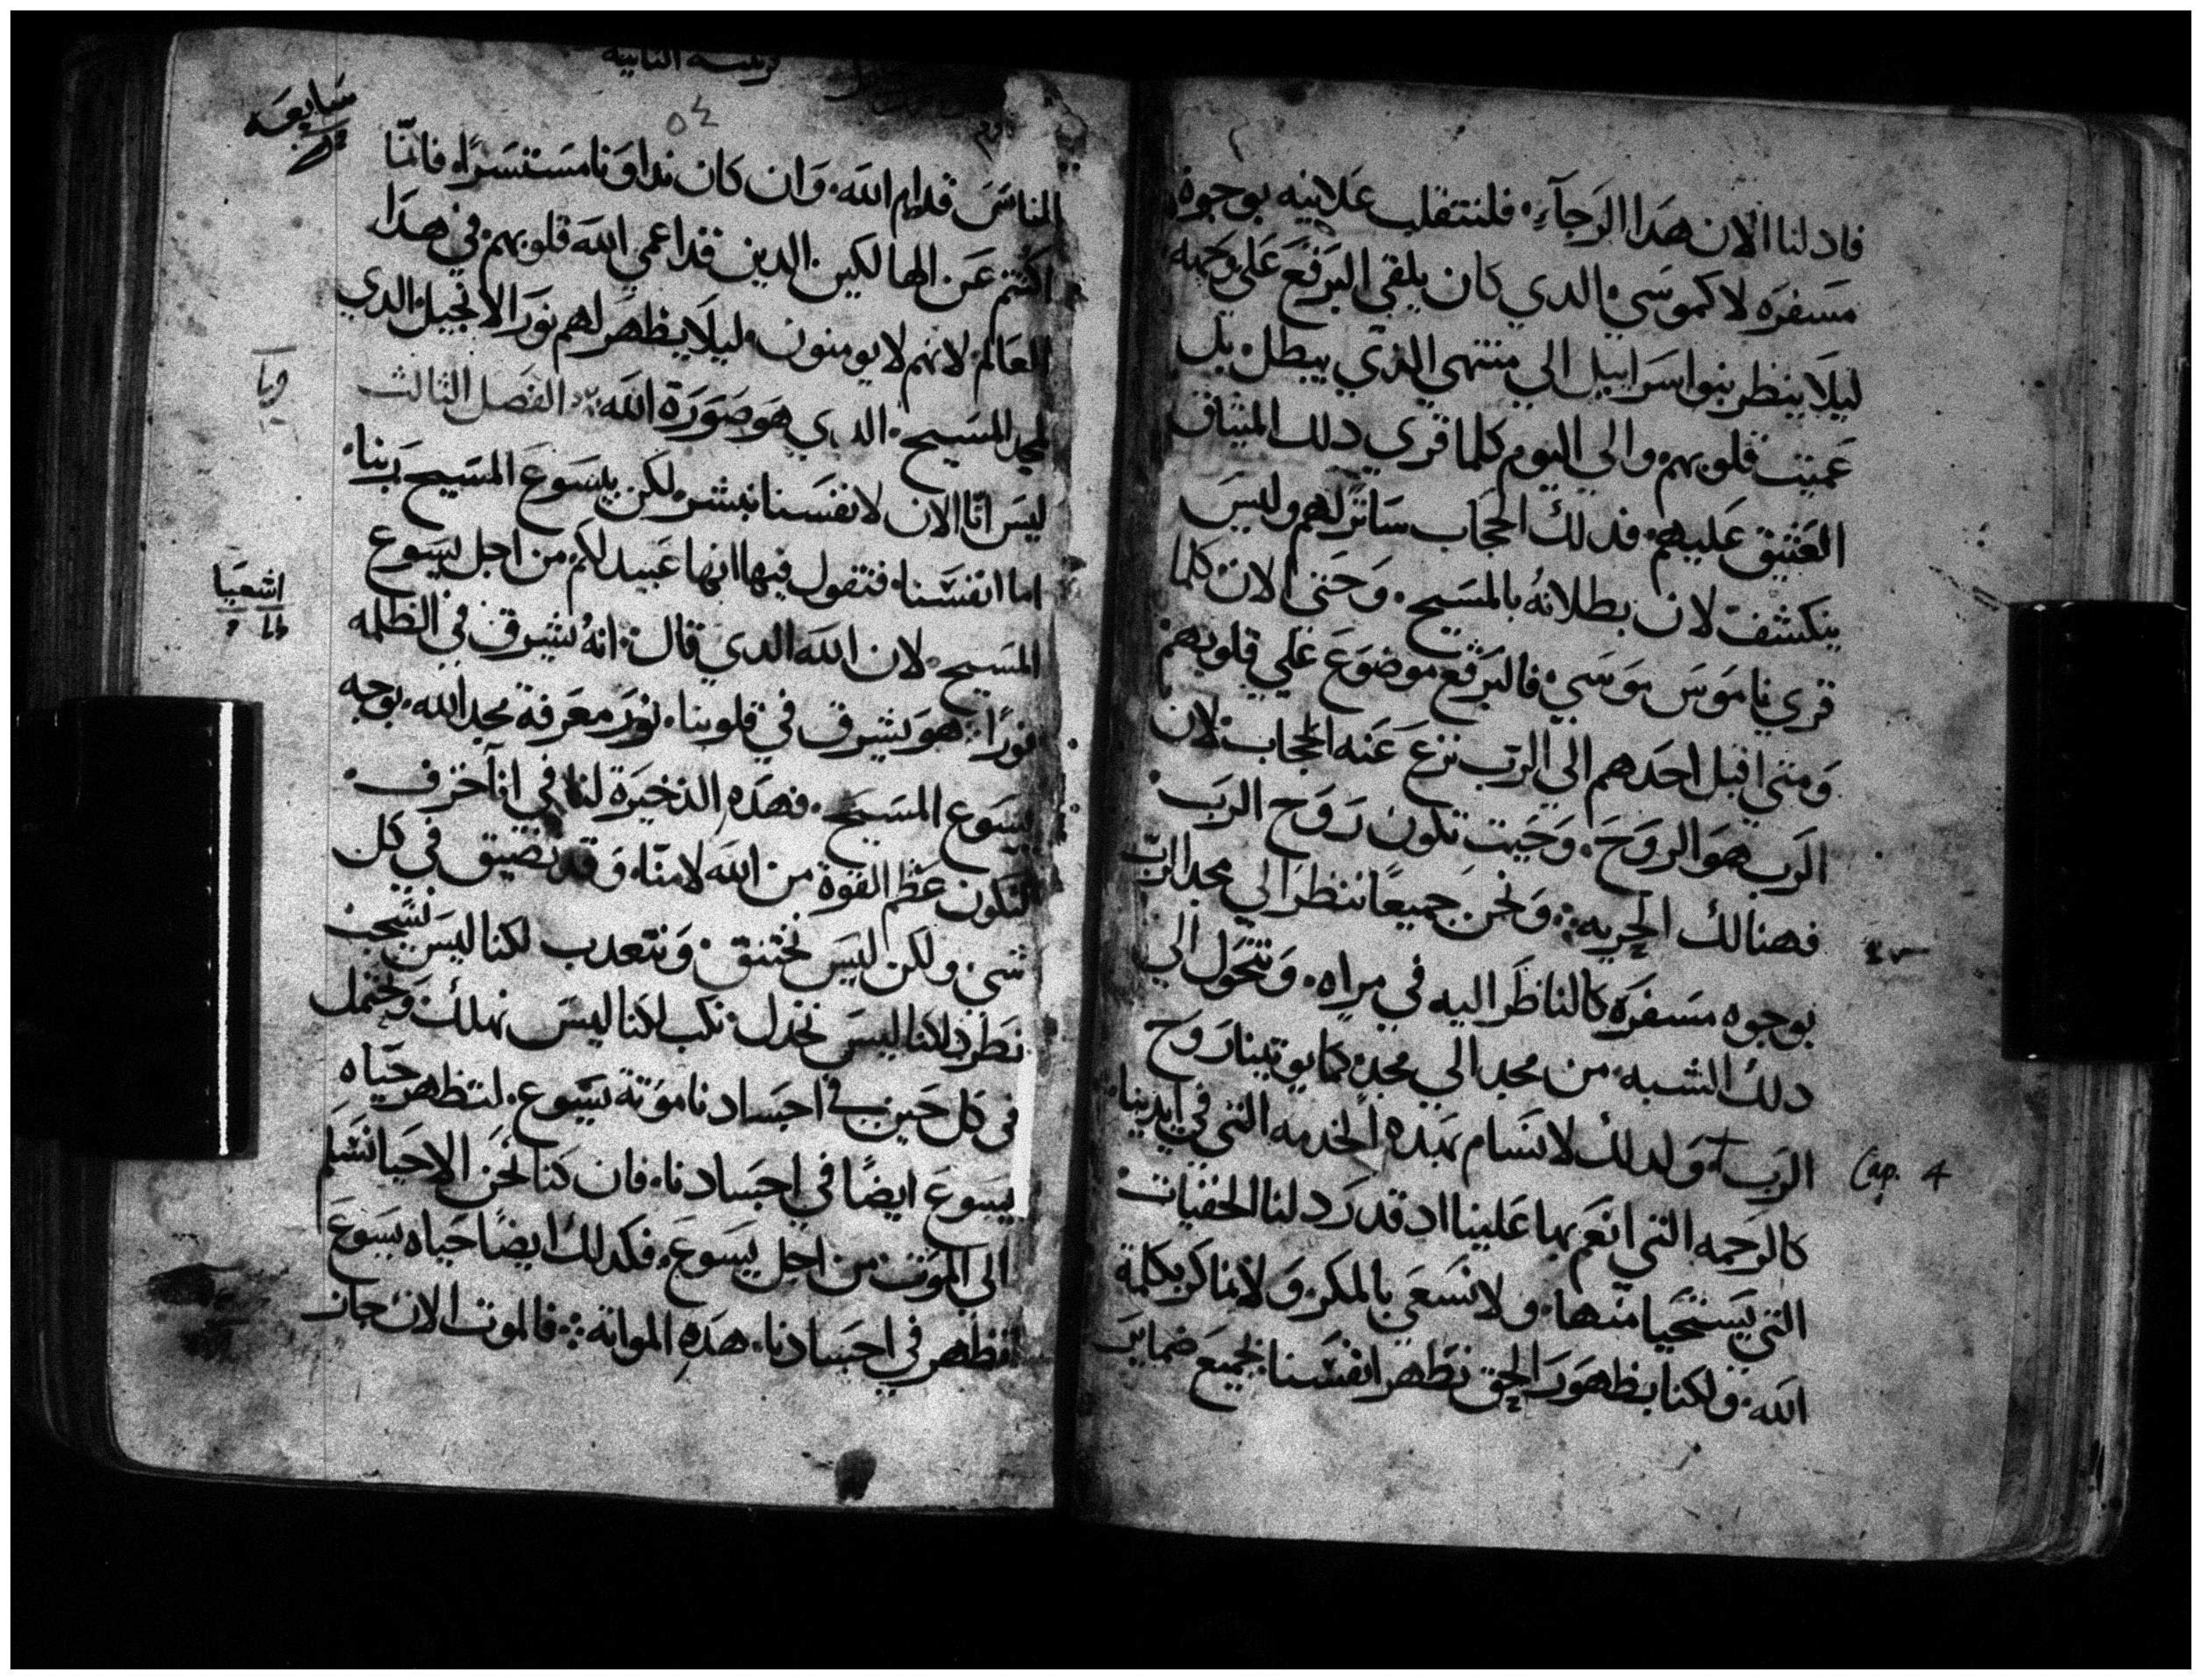 فاد لنا الان هدا الرجآء. فلنتقلب علانيه بوجوه
مسفره لا كموسي الدي كان يلقي البرقع علي وجهه
ليلا ينظر بنوا اسراييل الي منتهي الذي يبطل. بل
عميت قلوبهم والي اليوم كلما قري دلك الميثاق
العتيق عليهم. فدلك الحجاب ساتر لهم وليس
ينكشف لان بطلانه بالمسيح. وحتي الان كلما
قري ناموس موسي فالبرقع موضوع علي قلوبهم
ومتي اقبل احدهم الي الرب نزع عنه الحجاب لان
الرب هو الروح. وحيت تكون روح الرب
فهنالك الحريه. ونحن جميعًا ننظر الي مجد الرب
بوجوه مسفره كالناظر اليه في مراه. ونتحول الي
دلك الشبه من مجد الي مجد كما يوتينا روح
الرب. ولدلك لا نسام بهده الخدمه التي في ايدينا
Cap. 4
كالرحمه التي انعم بها علينا اد قد ردلنا الخفيات
التي يستحيا منها. ولا نسعي بالمكر. ولا نماكر بكلمة
الله. ولكنا بظهور الحق نظهر انفسنا لجميع ضماير
قرنتيه التانيه
٥٤
سابعه
الناس قدام الله. وان كان نداونا مستسرًا. فانمّا
اكتتم عن الهالكين الدين قد اعمي الله قلوبهم في هدا
العالم لانهم لا يومنون. ليلا يظهر لهم نور الانجيل الدي
لمجد المسيح. الدي هو صورة الله. الفصل الثالث
ليس انّا الان لانفسنا نبشر لكن بيسوع المسيح ربنا.
اما انفسنا. فنقول فيها انها عبيد لكم من اجل يسوع
اشعيا
المسيح. لان الله الدي قال انه يشرق في الظلمه
نورًا. هو يشرق في قلوبنا. نور معرفة مجد الله. بوجه
يسوع المسيح. فهده الدخيرة لنا في انآ خزف.
لتكون عظم القوة من الله لا منّا. وقد نضيق في كل
شي ولكن ليس نختنق. ونتعدب لكنا ليس نشجب
نطرد لكنا ليس نخدل. نكب لكنا ليس نهلك. ونحتمل
في كل حين في اجسادنا موتة يسوع. لتظهر حياه
يسوع ايضًا في اجسادنا. فان كنا نحن الاحيا نسلم
الي الموت من اجل يسوع. فكدلك ايضًا حياه يسوع
تظهر في اجسادنا. هده المواته. فالموت الان جاز